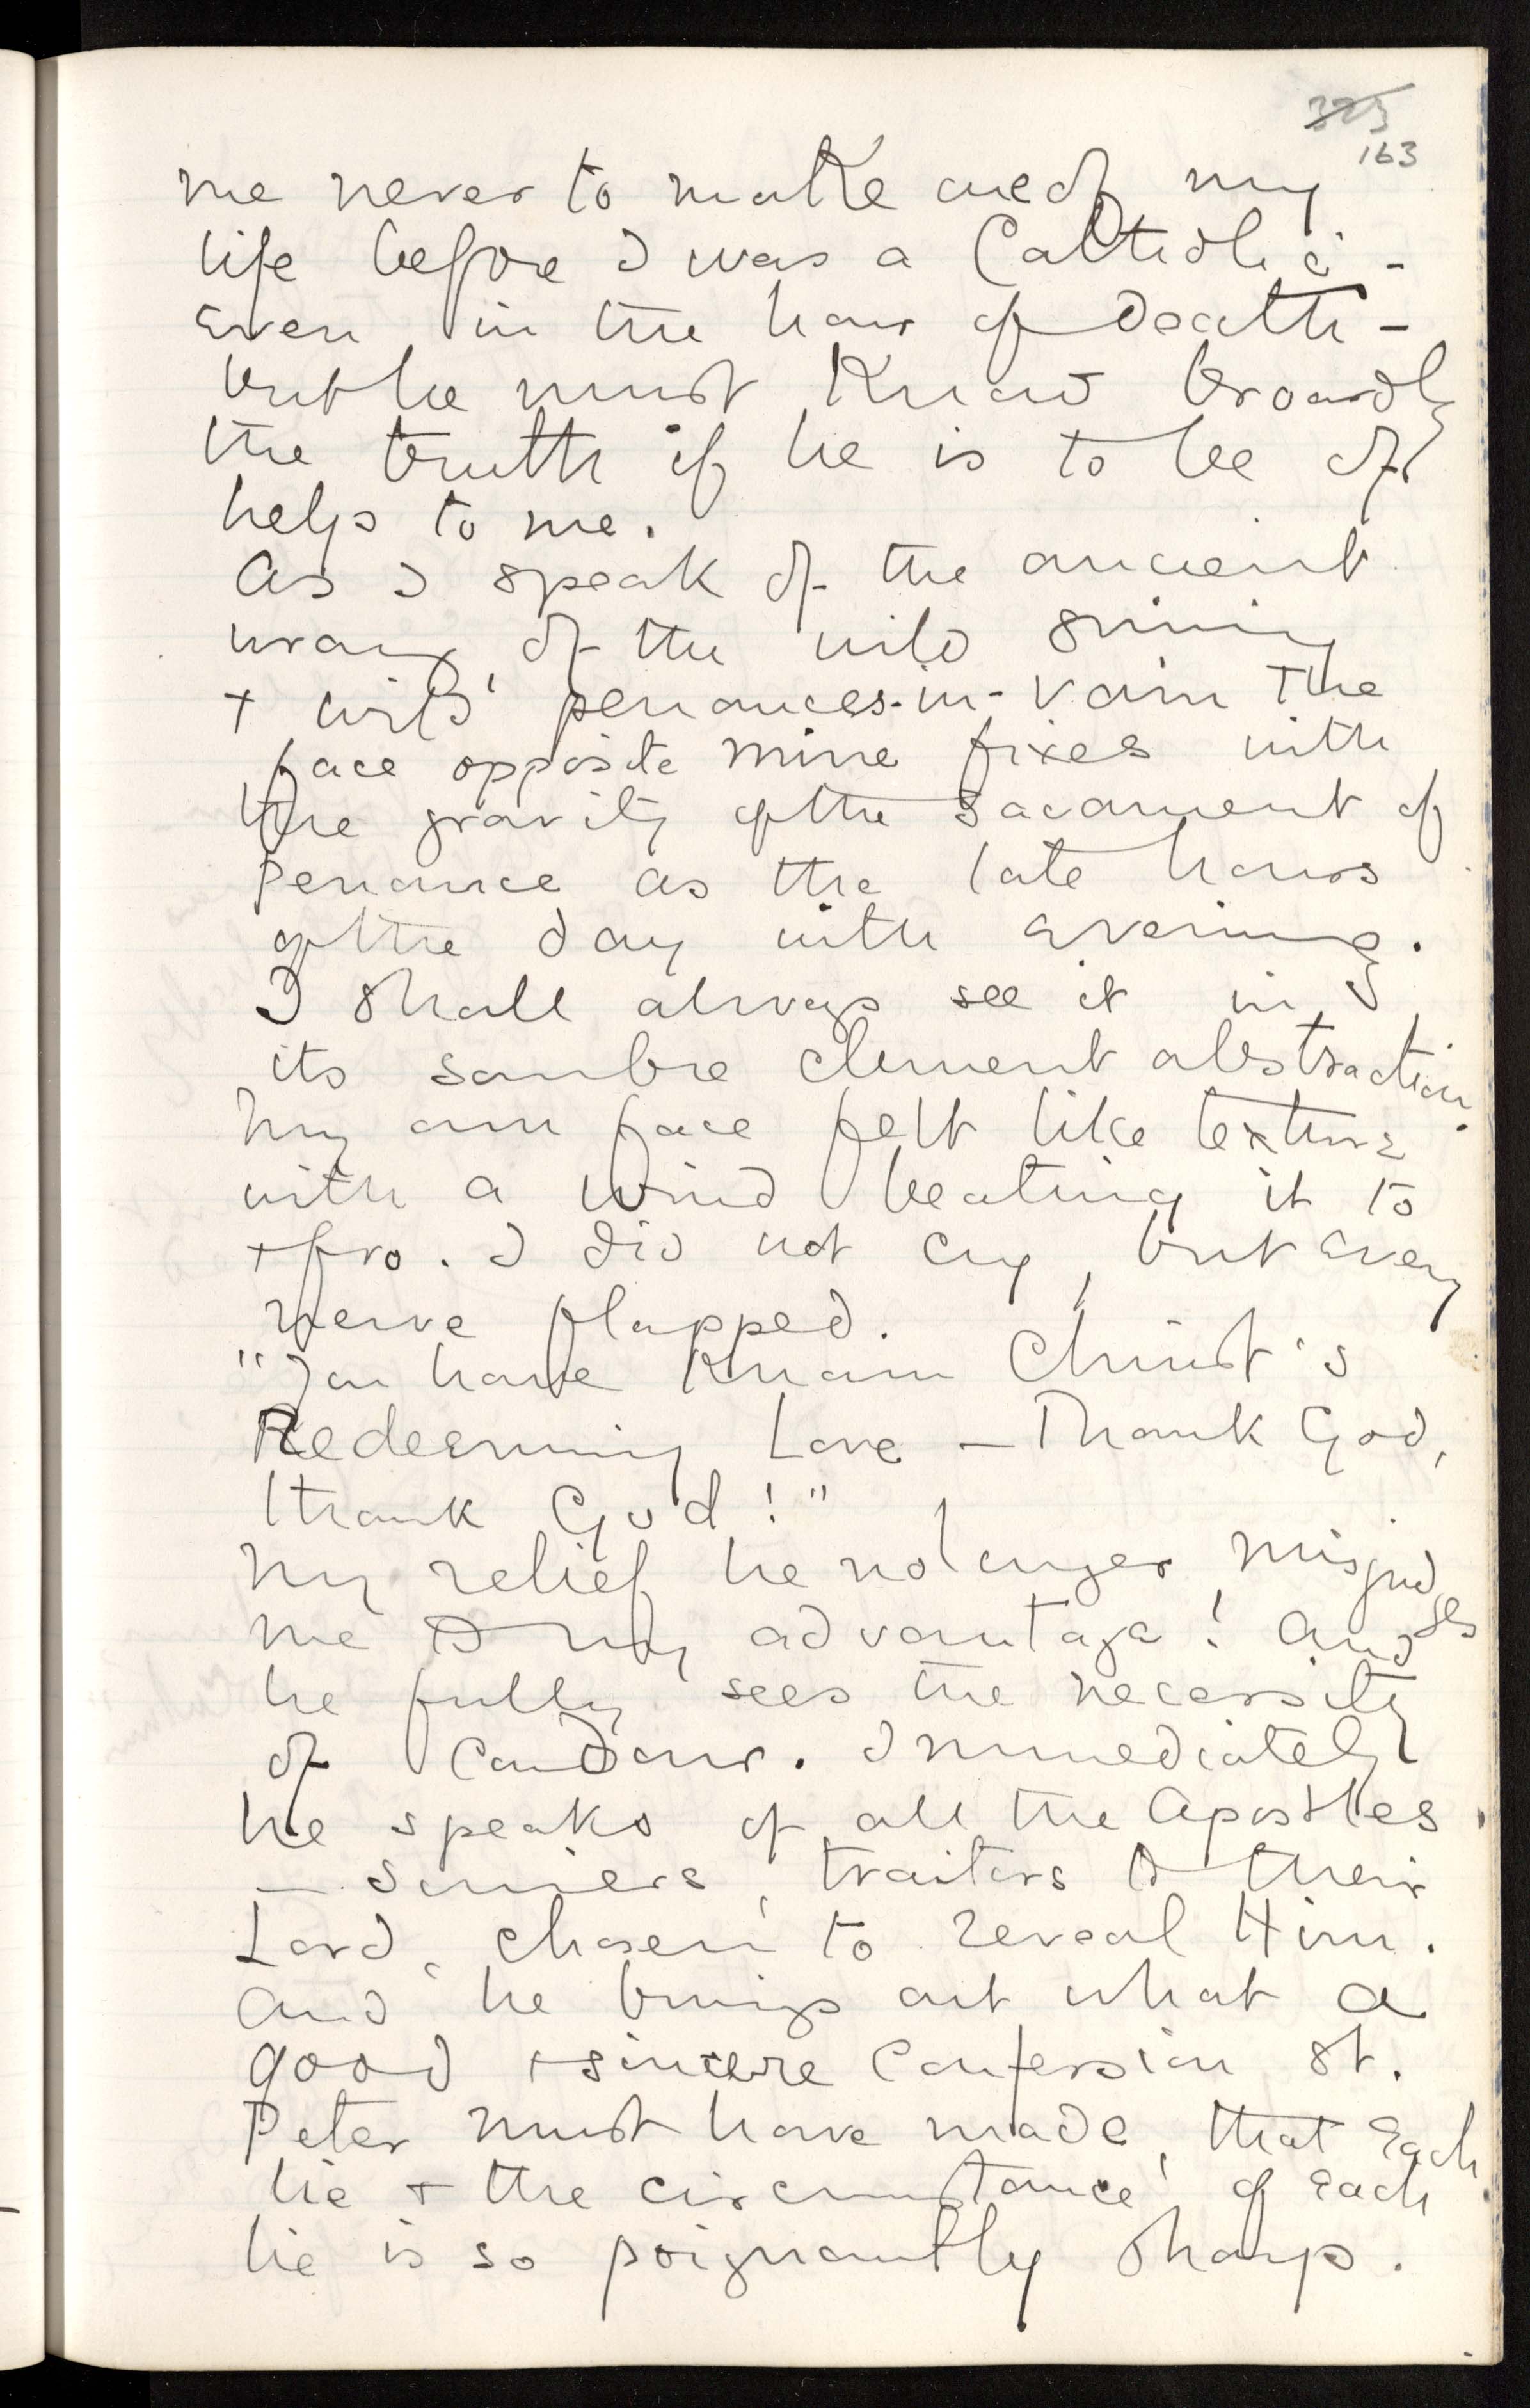 325
163
me never to make use of my
life before I was a Catholic -
even in the hour of Death -
but he must Know broadly
the truth if he is to be of
help to me.
As I speak of the ancient
wrong, of the wild sinning
+ wild penances-in-vain the
face opposite mine fixes with
the gravity of the Sacrament of
Penance as the late hours
of the day with evening.
I shall always see it in
its sombre clement abstraction.
My own face felt like texture
with a wind beating it to
+ fro. I did not cry, but every
nerve flapped.
"You have Known Christ's
Redeeming Love - Thank God,
thank God!"
My relief he no longer misjudges
me to my advantage! And
he fully sees the necessity
of Candour. Immediately
he speaks of all the Apostles
- Sinners, traitors to their
Lord, chosen to reveal Him.
And he brings out what a
good + sincere Confession St.
Peter must have made, that each
lie + the circumstance of each
lie is so poignantly sharp.